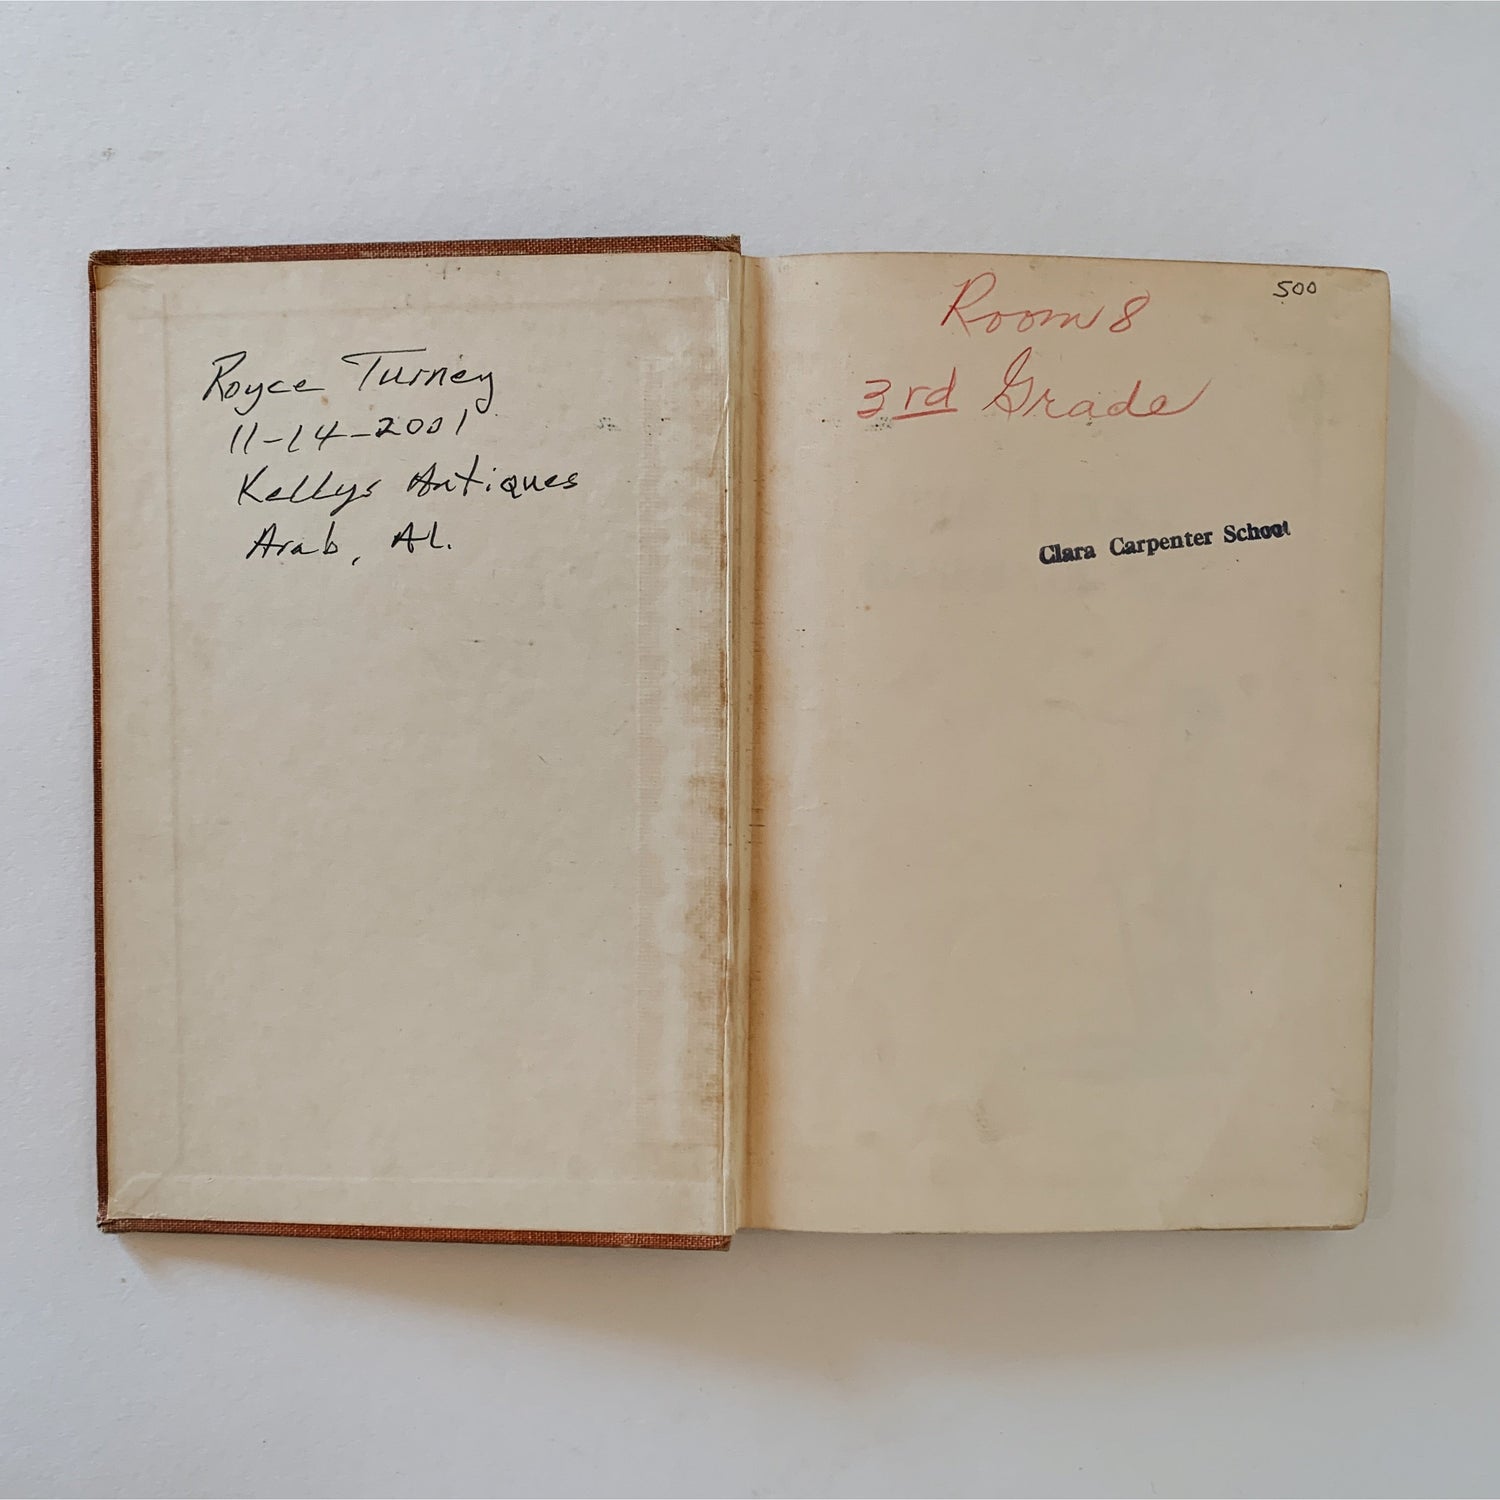 Royce Turney
11-14-2001
Kellys Antiques
Arab, Al.
500
Room 8
3rd Grade
Clara Carpenter School